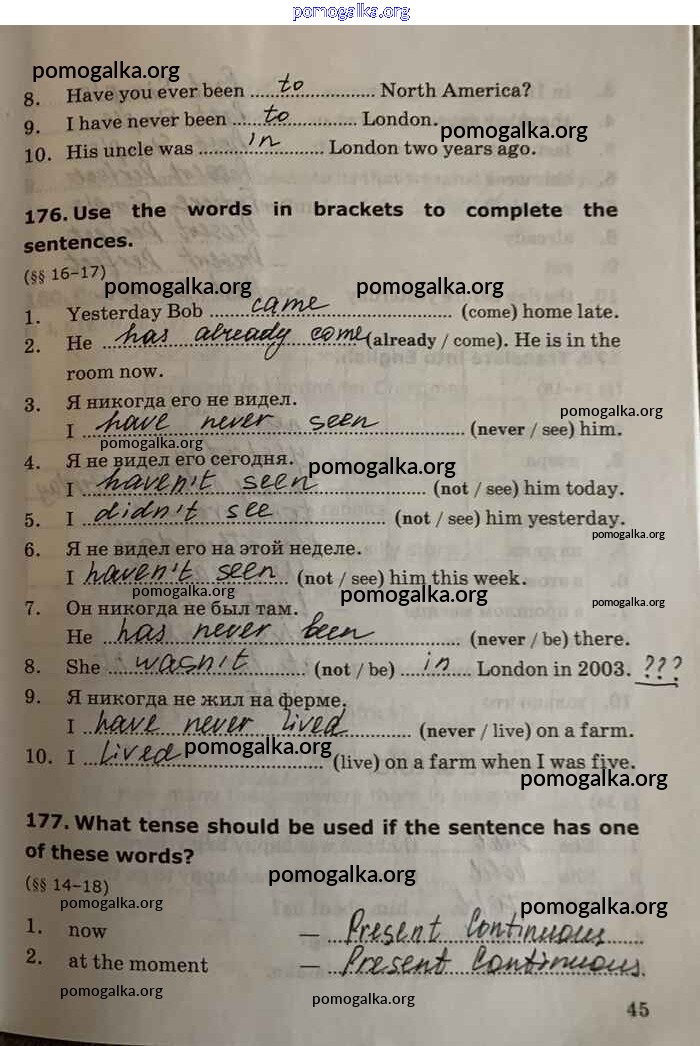 pomogalka.org
pomogalka.org
8. Have you ever been ...to... North America?
9. I have never been ...to... London.
pomogalka.org
10. His uncle was ...in... London two years ago.
176. Use the words in brackets to complete the
sentences.
(§§ 16–17)
pomogalka.org pomogalka.org
1. Yesterday Bob ...came... (come) home late.
2. He ...has already come (already / come). He is in the
room now.
3. Я никогда его не видел.
pomogalka.org
I ...have never seen... (never / see) him.
pomogalka.org
4. Я не видел его сегодня.
pomogalka.org
I ...haven't seen... (not / see) him today.
5. I ...didn't see... (not / see) him yesterday.
pomogalka.org
6. Я не видел его на этой неделе.
I haven't seen... (not / see) him this week.
pomogalka.org pomogalka.org pomogalka.org
7. Он никогда не был там.
He ...has never been... (never / be) there.
8. She ...wasn't... (not / be) ...in... London in 2003. ???
9. Я никогда не жил на ферме.
I ...have never lived... (never / live) on a farm.
pomogalka.org
10. I ...lived... (live) on a farm when I was five.
pomogalka.org
177. What tense should be used if the sentence has one
of these words?
pomogalka.org
(§§ 14–18)
pomogalka.org pomogalka.org
1. now — ...Present Continuous...
2. at the moment — ...Present Continuous.
pomogalka.org pomogalka.org
45